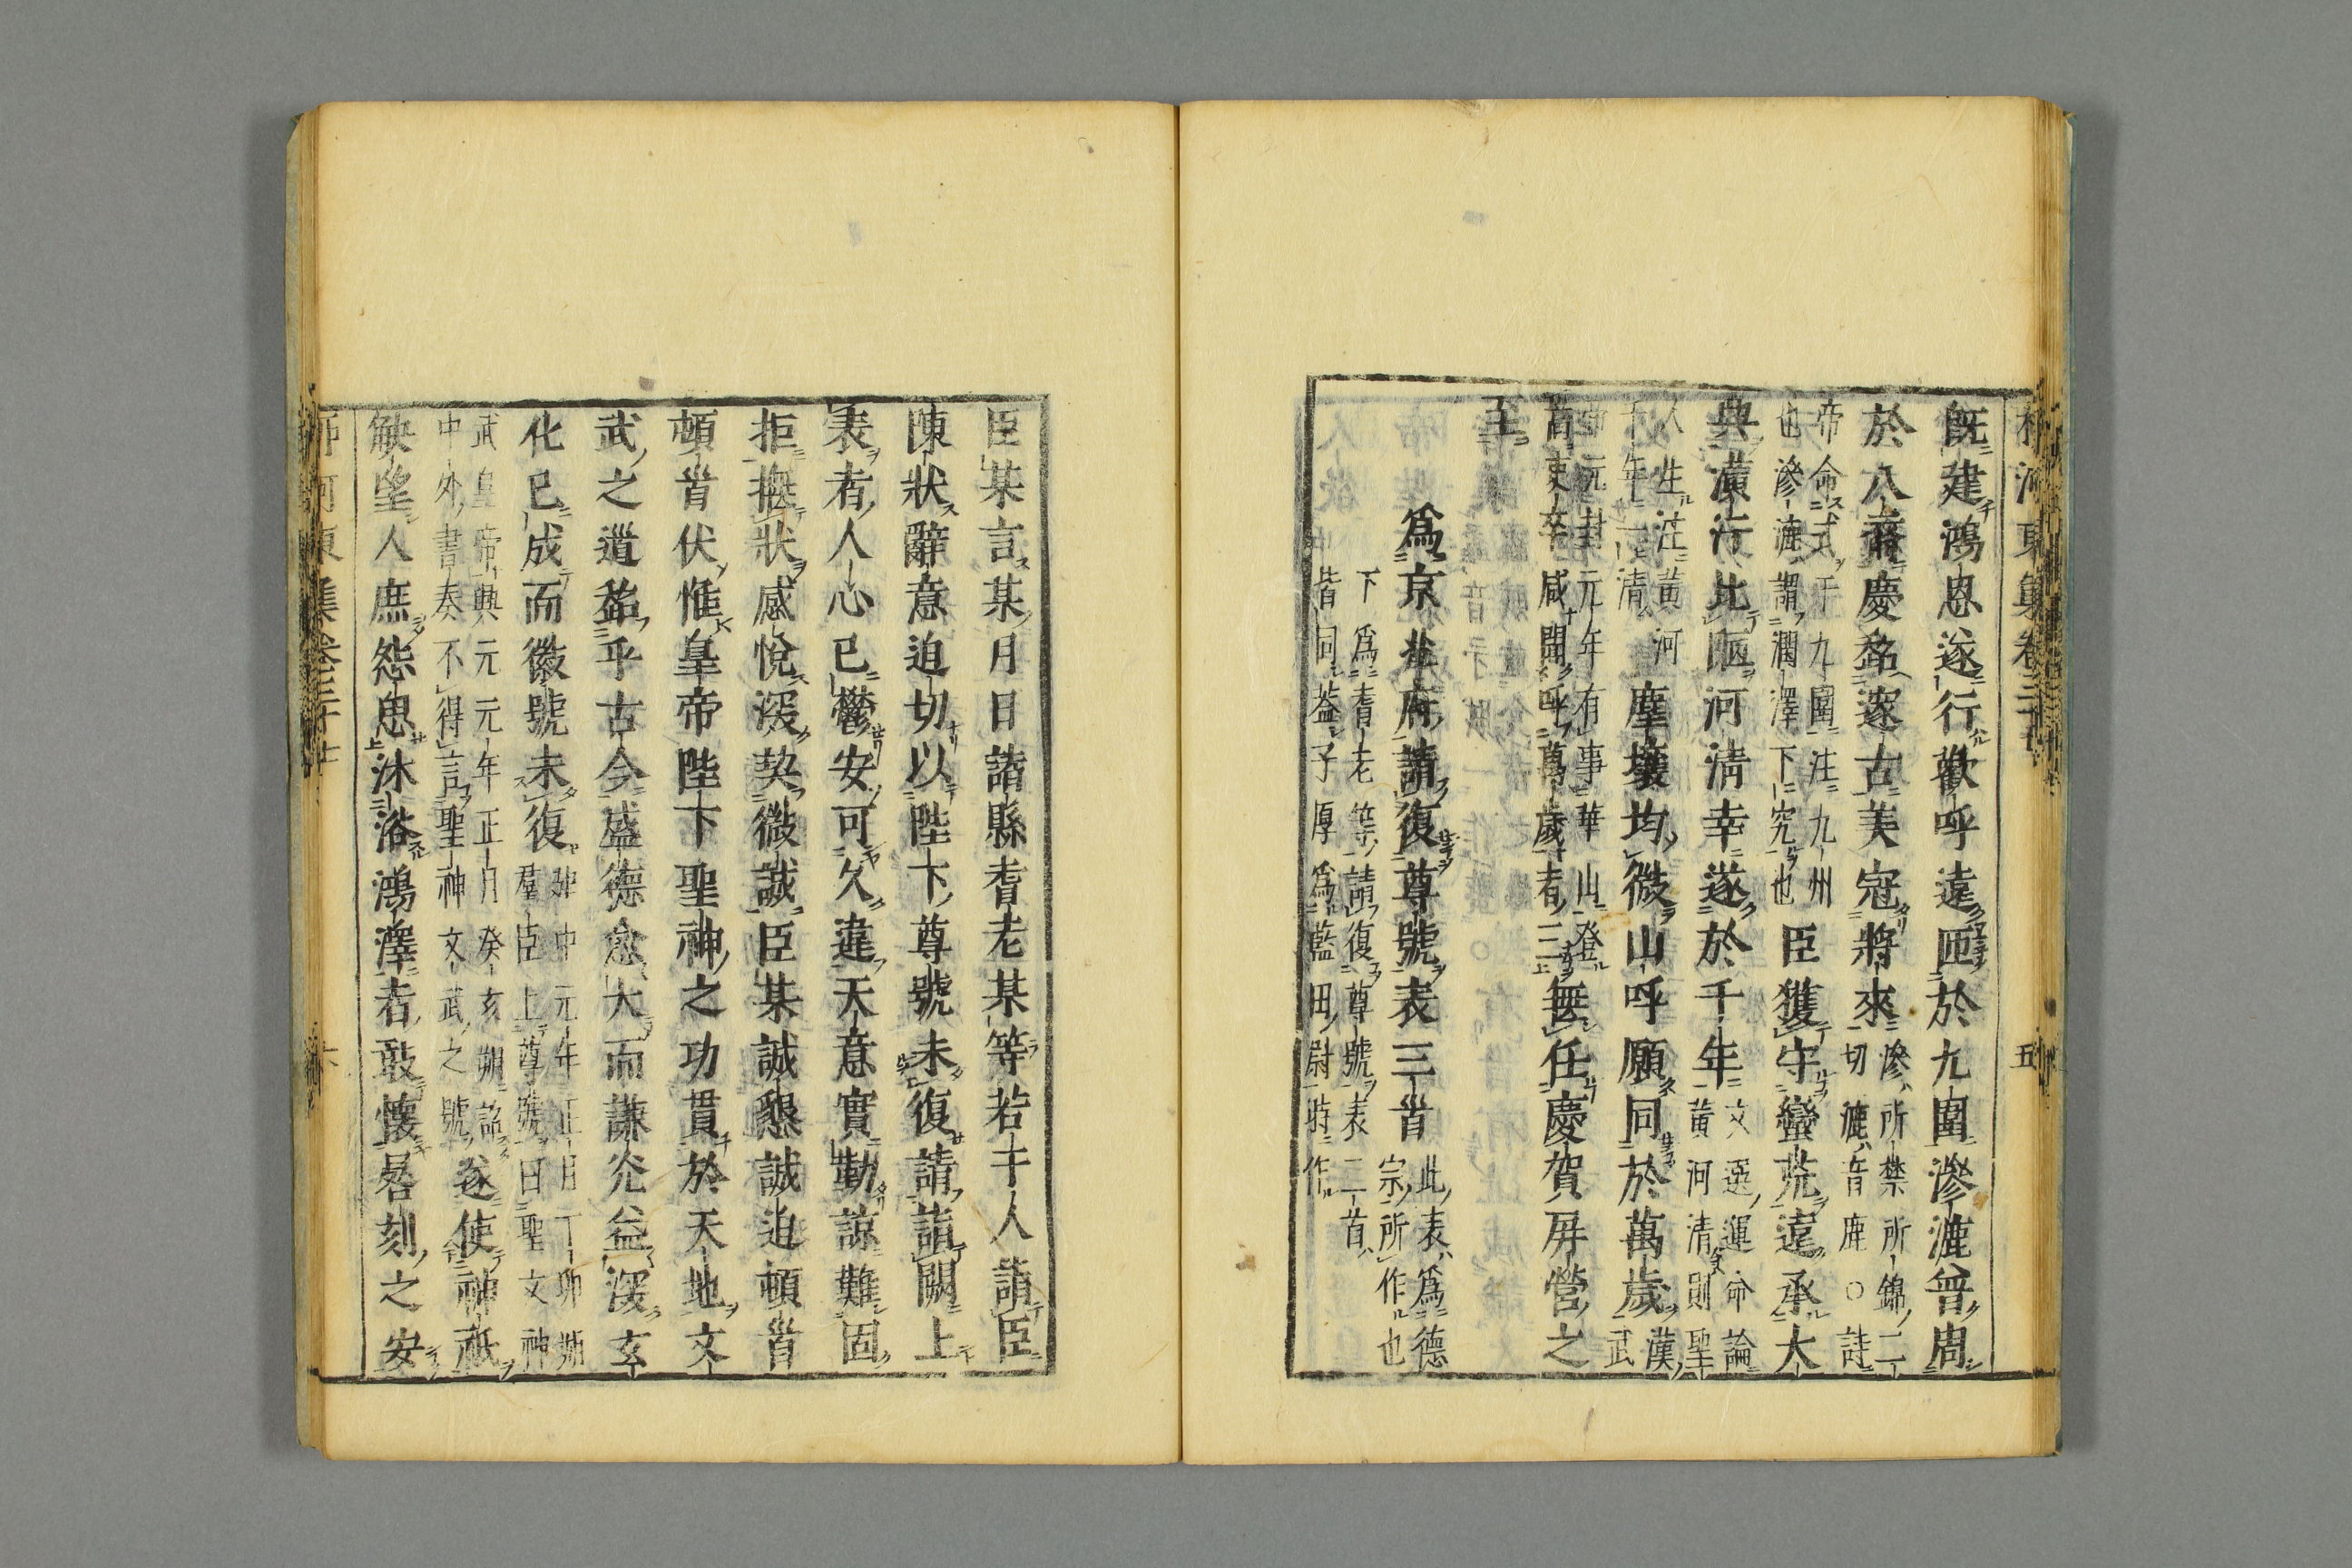 既建鴻恩遂行歡呼遠匝於九圍滲漉曾周
於八裔慶超邃古美冠將來滲所禁所錦二
切漉音鹿○詩
帝命式于九圍注九州
也滲漉謂潤澤下究也臣獲守蠻荒遠承大
典濱行比陋河清幸遂於千年文選運命論
黄河清則聖
人生注黄河
千年一清塵壤均微山呼願同於萬歲漢武
帝元封元年有事華山登
首吏卒咸聞呼萬歲者三無任慶賀屏營之
至
爲京兆府請復尊號表三首此表爲德
宗所作也
下爲耆老等請復尊號表二首
皆同蓋子厚爲藍田尉時作
臣某言某月日諸縣耆老某等若干人請臣
陳狀辭意迫切以陛下尊號未復請詣闕上
表者人心已鬱安可久違天意實勤諒難固
拒撫狀感悅深契微誠臣某誠懇誠迫頓首
頓首伏惟皇帝陛下聖神之功貫於天地文
武之道超乎古今盛德愈大而謙光益深玄
化已成而徽號未復建中元年正月丁卯朔
羣臣上尊號曰聖文神
武皇帝興元元年正月癸亥朔詔
中外書奏不得言聖神文武之號遂使神祇
缺望人庶怨思沐浴鴻澤者敢懷晷刻之安
柳河東集卷三十七 五
柳河東集卷三十七 六